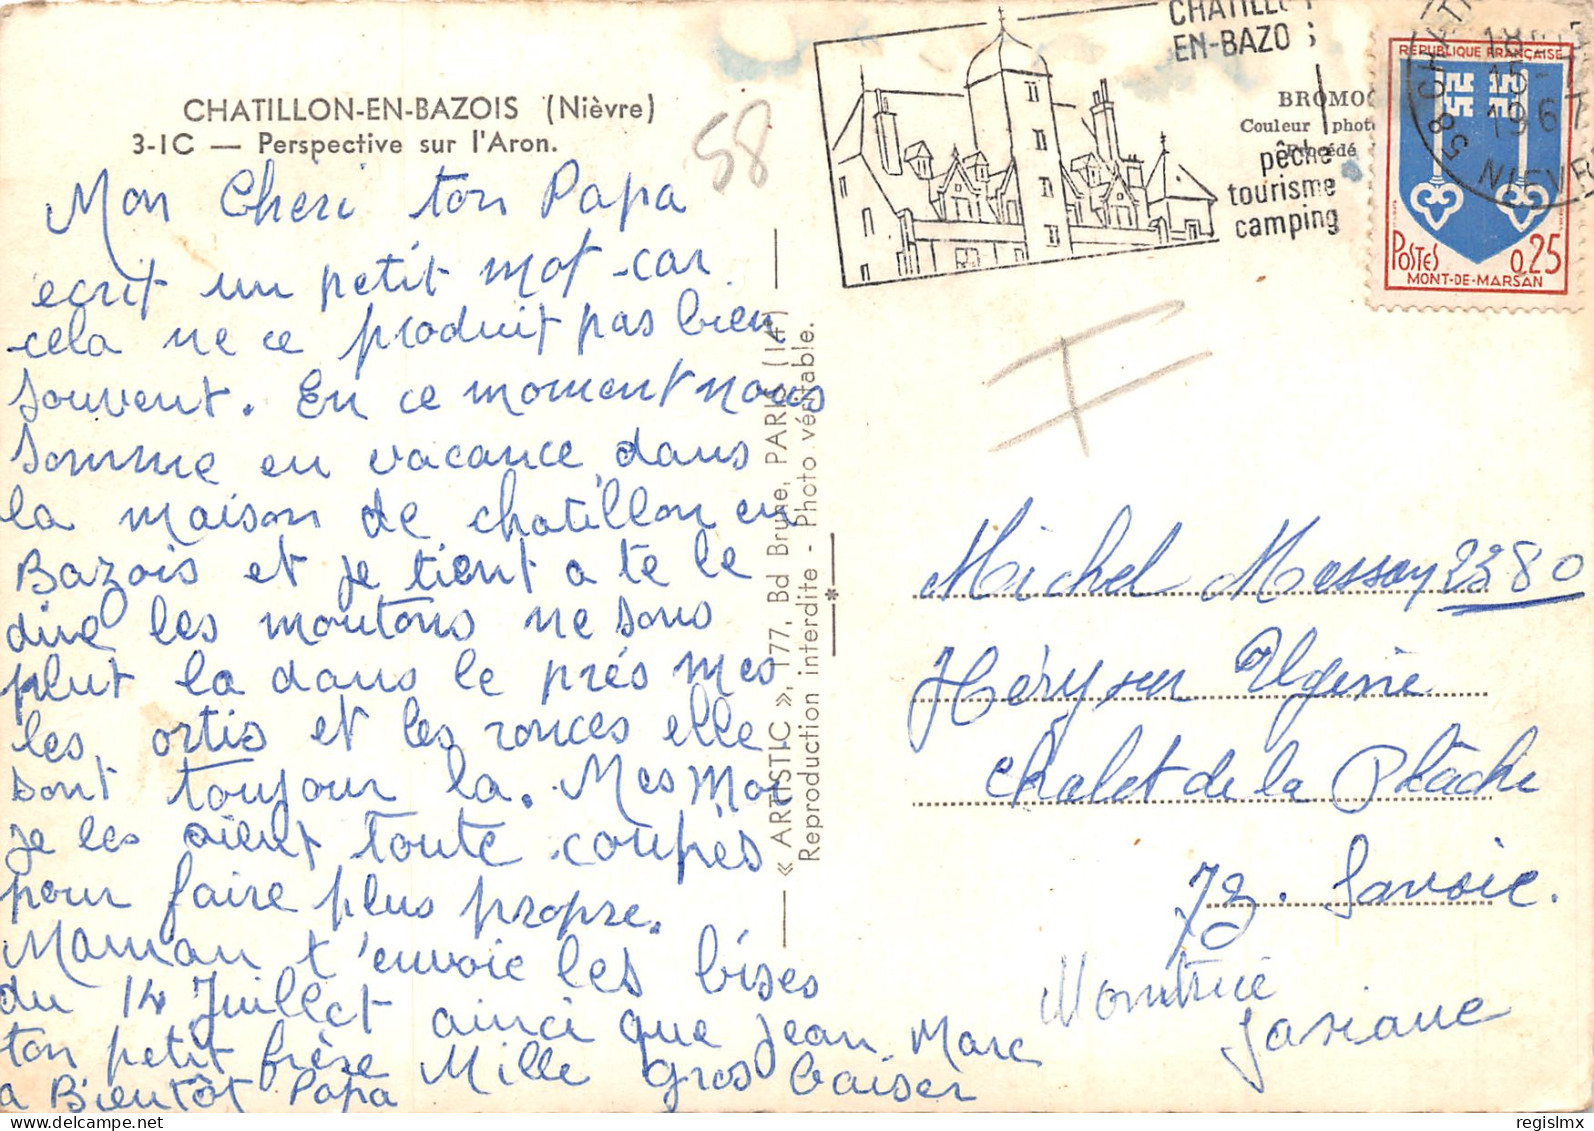 CHATILLON-EN-BAZOIS (Nièvre)
3-IC — Perspective sur l'Aron.
58
Mon Cheri ton Papa
ecrit un petit mot car
cela ne ce produit pas bien
souvent. En ce moment nous
somme en vacance, dans
la maison de chatillon en
Bazois et je tient a te le
dire les moutons ne sons
plut la dans le prés mes
les ortis et les ronces elle
sont toujour la. Mes Moi
je les aient toute coupés
pour faire plus propre.
Maman t'envoie les bises
du 14 Juillet ainci que Jean Marc
ton petit frère Mille gros baiser
a Bientôt Papa
« ARTISTIC », 177, Bd Brune, PARIS (14)
Reproduction interdite - Photo véritable.
CHATILL
EN-BAZO S
pêche
tourisme
camping
BROMO
Couleur phot
Procédé
18
15-
196
NIEVR
RÉPUBLIQUE FRANÇAISE
POSTES 0,25
MONT-DE-MARSAN
Michel Massay 2380
Héry sur Ugine
Chalet de la Ptache
73. Savoie.
Monitrice
Josiane
regislmx